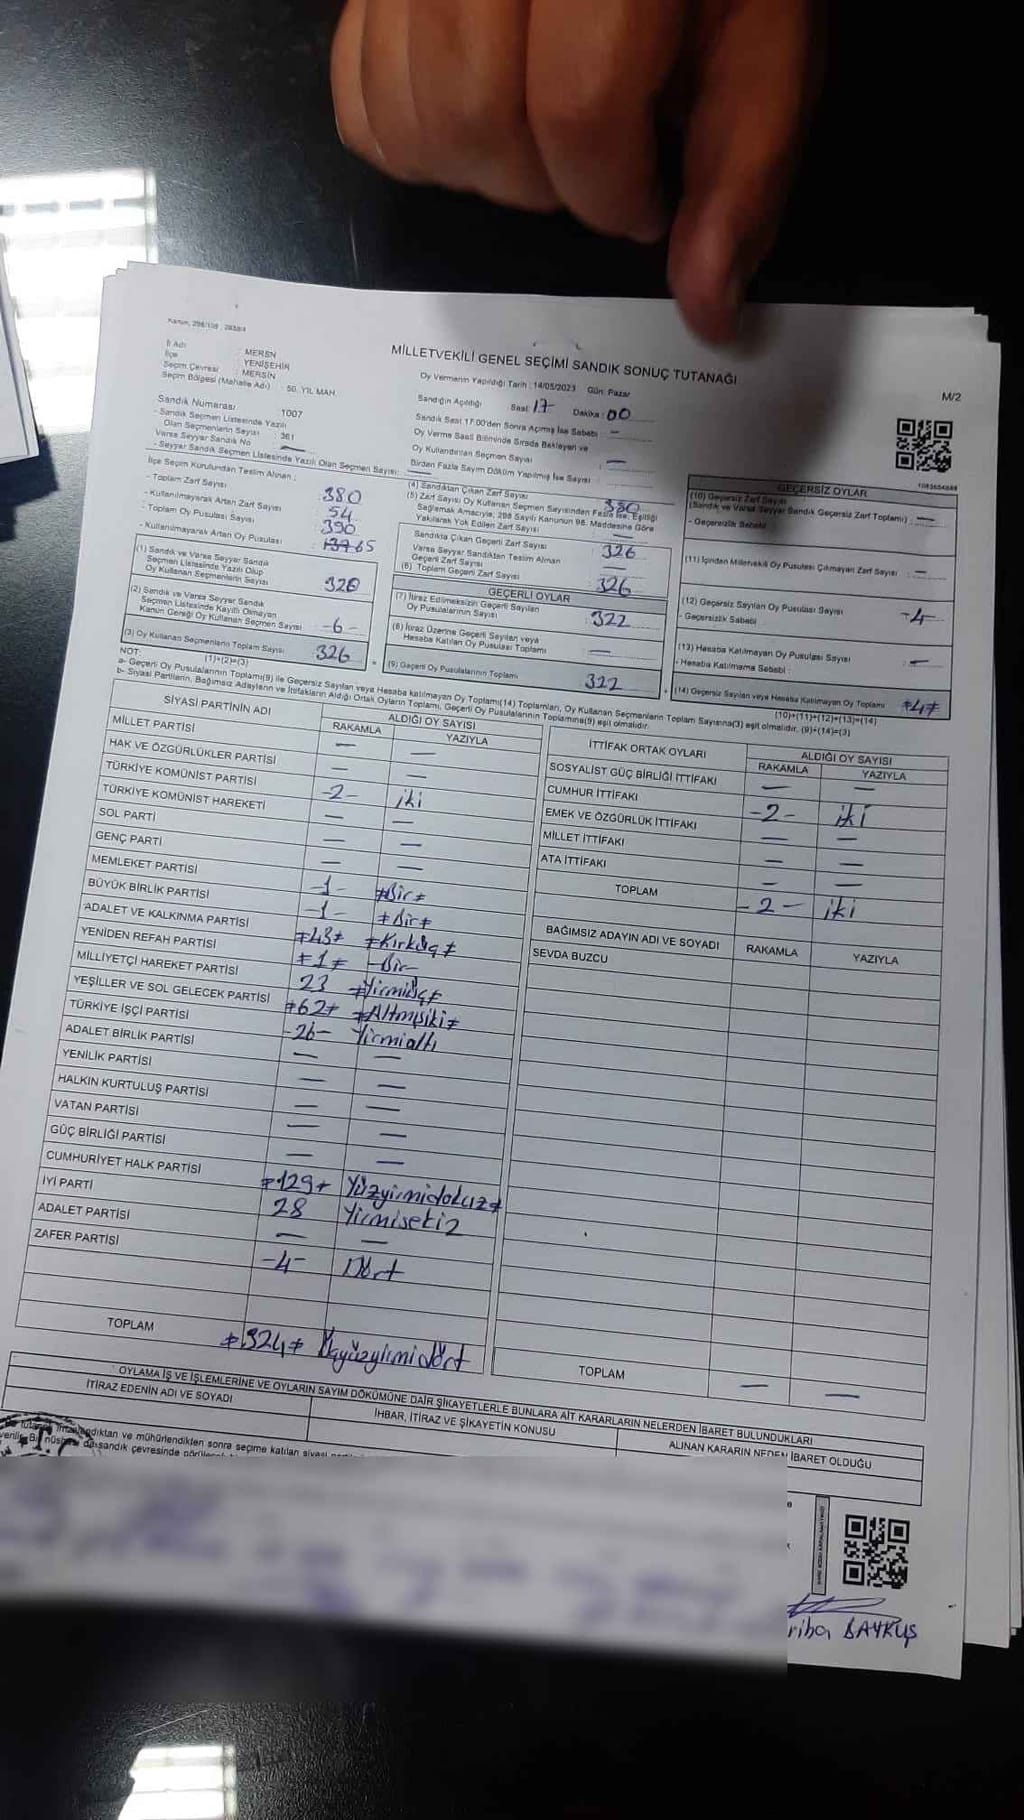 Kanun; 298/108 , 2839/4
MİLLETVEKİLİ GENEL SEÇİMİ SANDIK SONUÇ TUTANAĞI
M/2
İl Adı : MERSİN
İlçe : YENİŞEHİR
Seçim Çevresi : MERSİN
Seçim Bölgesi (Mahalle Adı) : 50. YIL MAH.
Sandık Numarası : 1007
- Sandık Seçmen Listesinde Yazılı
Olan Seçmenlerin Sayısı : 361
Varsa Seyyar Sandık No : —
- Seyyar Sandık Seçmen Listesinde Yazılı Olan Seçmen Sayısı: —
Oy Vermenin Yapıldığı Tarih : 14/05/2023 Gün: Pazar
Sandığın Açıldığı Saat: 17 Dakika: 00
Sandık Saat 17.00'den Sonra Açılmış İse Sebebi : —
Oy Verme Saati Bitiminde Sırada Bekleyen ve
Oy Kullandırılan Seçmen Sayısı : —
Birden Fazla Sayım Döküm Yapılmış İse Sayısı : —
İlçe Seçim Kurulundan Teslim Alınan :
- Toplam Zarf Sayısı : 380
- Kullanılmayarak Artan Zarf Sayısı : 54
- Toplam Oy Pusulası Sayısı : 390
- Kullanılmayarak Artan Oy Pusulası : 65
(1) Sandık ve Varsa Seyyar Sandık
Seçmen Listesinde Yazılı Olup
Oy Kullanan Seçmenlerin Sayısı 320
(2) Sandık ve Varsa Seyyar Sandık
Seçmen Listesinde Kayıtlı Olmayan
Kanun Gereği Oy Kullanan Seçmen Sayısı -6-
(3) Oy Kullanan Seçmenlerin Toplam Sayısı 326
(1)+(2)=(3)
(4) Sandıktan Çıkan Zarf Sayısı : 380
(5) Zarf Sayısı Oy Kullanan Seçmen Sayısından Fazla İse, Eşitliği
Sağlamak Amacıyla; 298 Sayılı Kanunun 98. Maddesine Göre
Yakılarak Yok Edilen Zarf Sayısı : —
Sandıkta Çıkan Geçerli Zarf Sayısı : 326
Varsa Seyyar Sandıktan Teslim Alınan
Geçerli Zarf Sayısı : —
(6) Toplam Geçerli Zarf Sayısı : 326
GEÇERLİ OYLAR
(7) İtiraz Edilmeksizin Geçerli Sayılan
Oy Pusulalarının Sayısı : 322
(8) İtiraz Üzerine Geçerli Sayılan veya
Hesaba Katılan Oy Pusulası Toplamı : —
(9) Geçerli Oy Pusulalarının Toplamı : 322
1083654888
GEÇERSİZ OYLAR
(10) Geçersiz Zarf Sayısı
(Sandık ve Varsa Seyyar Sandık Geçersiz Zarf Toplamı) : —
- Geçersizlik Sebebi :
(11) İçinden Milletvekili Oy Pusulası Çıkmayan Zarf Sayısı : —
(12) Geçersiz Sayılan Oy Pusulası Sayısı : -4-
- Geçersizlik Sebebi :
(13) Hesaba Katılmayan Oy Pusulası Sayısı : —
- Hesaba Katılmama Sebebi :
(14) Geçersiz Sayılan veya Hesaba Katılmayan Oy Toplamı ≠4≠
(10)+(11)+(12)+(13)=(14)
NOT:
a- Geçerli Oy Pusulalarının Toplamı(9) ile Geçersiz Sayılan veya Hesaba katılmayan Oy Toplamı(14) Toplamları, Oy Kullanan Seçmenlerin Toplam Sayısına(3) eşit olmalıdır. (9)+(14)=(3)
b- Siyasi Partilerin, Bağımsız Adayların ve İttifakların Aldığı Ortak Oyların Toplamı, Geçerli Oy Pusulalarının Toplamına(9) eşit olmalıdır.
SİYASİ PARTİNİN ADI ALDIĞI OY SAYISI
RAKAMLA YAZIYLA
MİLLET PARTİSİ — —
HAK VE ÖZGÜRLÜKLER PARTİSİ — —
TÜRKİYE KOMÜNİST PARTİSİ -2- iki
TÜRKİYE KOMÜNİST HAREKETİ — —
SOL PARTİ — —
GENÇ PARTİ — —
MEMLEKET PARTİSİ -1- ≠Bir≠
BÜYÜK BİRLİK PARTİSİ -1- ≠Bir≠
ADALET VE KALKINMA PARTİSİ ≠43≠ ≠Kırküç≠
YENİDEN REFAH PARTİSİ ≠1≠ -Bir-
MİLLİYETÇİ HAREKET PARTİSİ 23 ≠Yirmiüç≠
YEŞİLLER VE SOL GELECEK PARTİSİ ≠62≠ ≠Altmışiki≠
TÜRKİYE İŞÇİ PARTİSİ -26- Yirmialtı
ADALET BİRLİK PARTİSİ — —
YENİLİK PARTİSİ — —
HALKIN KURTULUŞ PARTİSİ — —
VATAN PARTİSİ — —
GÜÇ BİRLİĞİ PARTİSİ — —
CUMHURİYET HALK PARTİSİ ≠129≠ Yüzyirmidokuz≠
İYİ PARTİ 28 Yirmisekiz
ADALET PARTİSİ — —
ZAFER PARTİSİ -4- Dört
TOPLAM ≠324≠ Üçyüzyirmidört
İTTİFAK ORTAK OYLARI ALDIĞI OY SAYISI
RAKAMLA YAZIYLA
SOSYALİST GÜÇ BİRLİĞİ İTTİFAKI — —
CUMHUR İTTİFAKI -2- iki
EMEK VE ÖZGÜRLÜK İTTİFAKI — —
MİLLET İTTİFAKI — —
ATA İTTİFAKI — —
TOPLAM -2- iki
BAĞIMSIZ ADAYIN ADI VE SOYADI RAKAMLA YAZIYLA
SEVDA BUZCU
TOPLAM — —
OYLAMA İŞ VE İŞLEMLERİNE VE OYLARIN SAYIM DÖKÜMÜNE DAİR ŞİKAYETLERLE BUNLARA AİT KARARLARIN NELERDEN İBARET BULUNDUKLARI
İTİRAZ EDENİN ADI VE SOYADI İHBAR, İTİRAZ VE ŞİKAYETİN KONUSU ALINAN KARARIN NEDEN İBARET OLDUĞU
imzalandıktan ve mühürlendikten sonra seçime katılan siyasi
sandık çevresinde
T.C.
riba BAYKUŞ